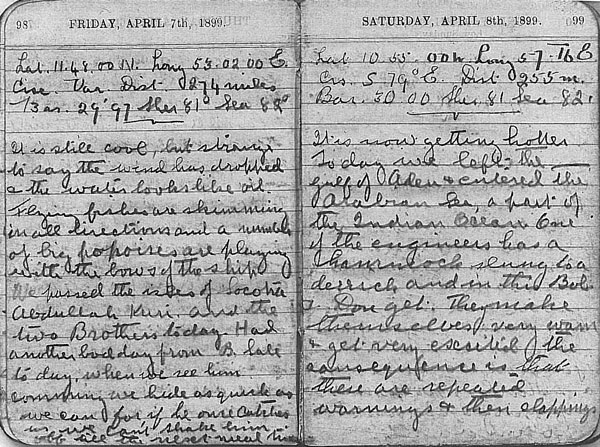 98 FRIDAY, APRIL 7th, 1899.
Lat. 11.48.00 N. Long 53.02.00 E.
Crse. Var. Dist 274 miles
Bar. 29.97 Ther 81° Sea 82°
It is still cool, but strange
to say the wind has dropped
& the water looks like oil
Flying fishes are skimming
in all directions and a number
of big popoises are playing
with the bows of the ship.
We passed the isles of Socotra
Abdullah Kuri. and the
two Brothers today. Had
another bad day from B. late
to day, when we see him
coming we hide as quick as
we can for if he once catches
us we can't shake him
off till the next meal
SATURDAY, APRIL 8th, 1899. 99
Lat 10.55.00 N Long 57.16 E
Crs. S 79° E. Dist 255 m.
Bar. 30.00 Ther 81 Sea 82.
It is now getting hotter
Today we left the
gulf of Aden & entered the
Arabian Sea, a part of
the Indian Ocean. One
of the engineers has a
hammock slung to a
derrick and in this
Don get. They make
themselves very warm
& get very excited, the
consequence is that
there are repeated
warnings & then slappings